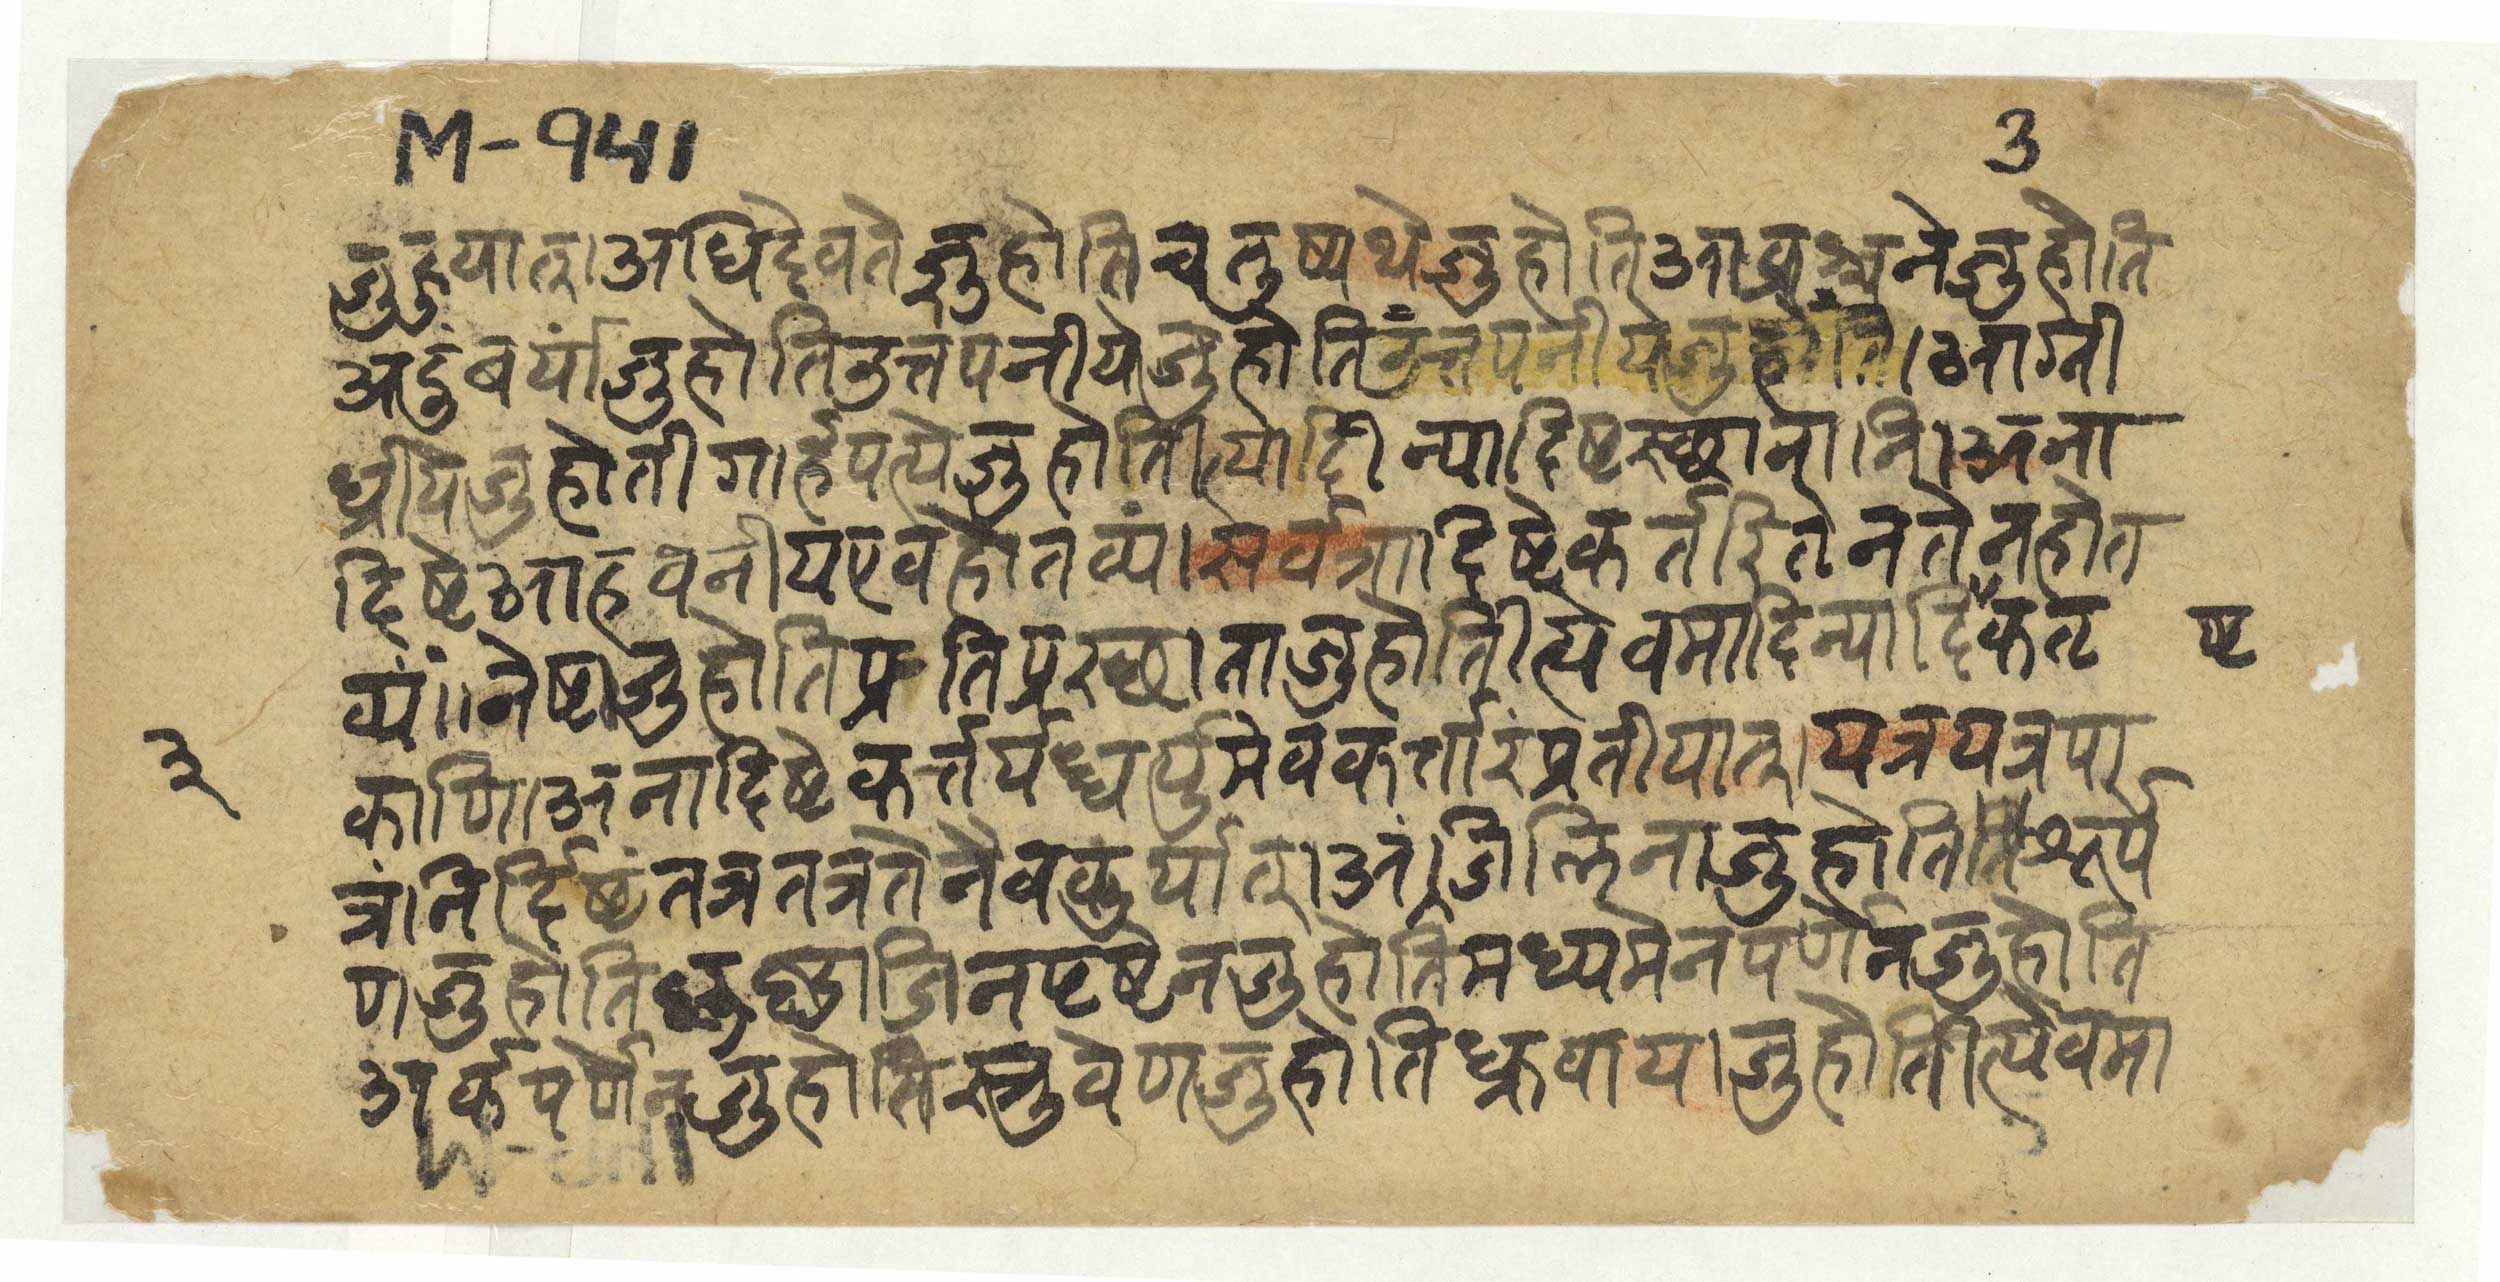 M-941
3
जुहुयात्।अधिदेवतेजुहोतिचतुष्पथेजुहोतिआव्रश्चनेजुहोति
अदुंबर्यांजुहोतिउत्तपनीयेजुहोतिउत्तपनीयेजुहोति।आग्नी
ध्रीयेजुहोतीगार्हपत्येजुहोतीत्यादीन्यादिष्टस्छानानि।अना
दिष्टेआहवनीयएवहोतव्यं।सर्वत्रादिष्टेकर्तरितेनतेनहोत
व्यं॥नेष्टाजुहोतिप्रतिप्रस्छाताजुहोतीत्येवमादिन्यादिकतृ ष्ट
३
काणि।अनादिष्टेकर्त्तर्यध्वर्युमेवकर्त्तारंप्रतीयात्।यत्रयत्रपा
त्रंनिर्दिष्टंतत्रतत्रतेनैवकुर्यात्।अंजलिनाजुहोतिशूर्पे
णजुहोतिकृष्णाजिनपृष्टेनजुहोतिमध्यमेनपर्णेनजुहोति
अर्कपर्णेनजुहोतिस्रुवेणजुहोतिध्रुवायाजुहोतीत्येवमा